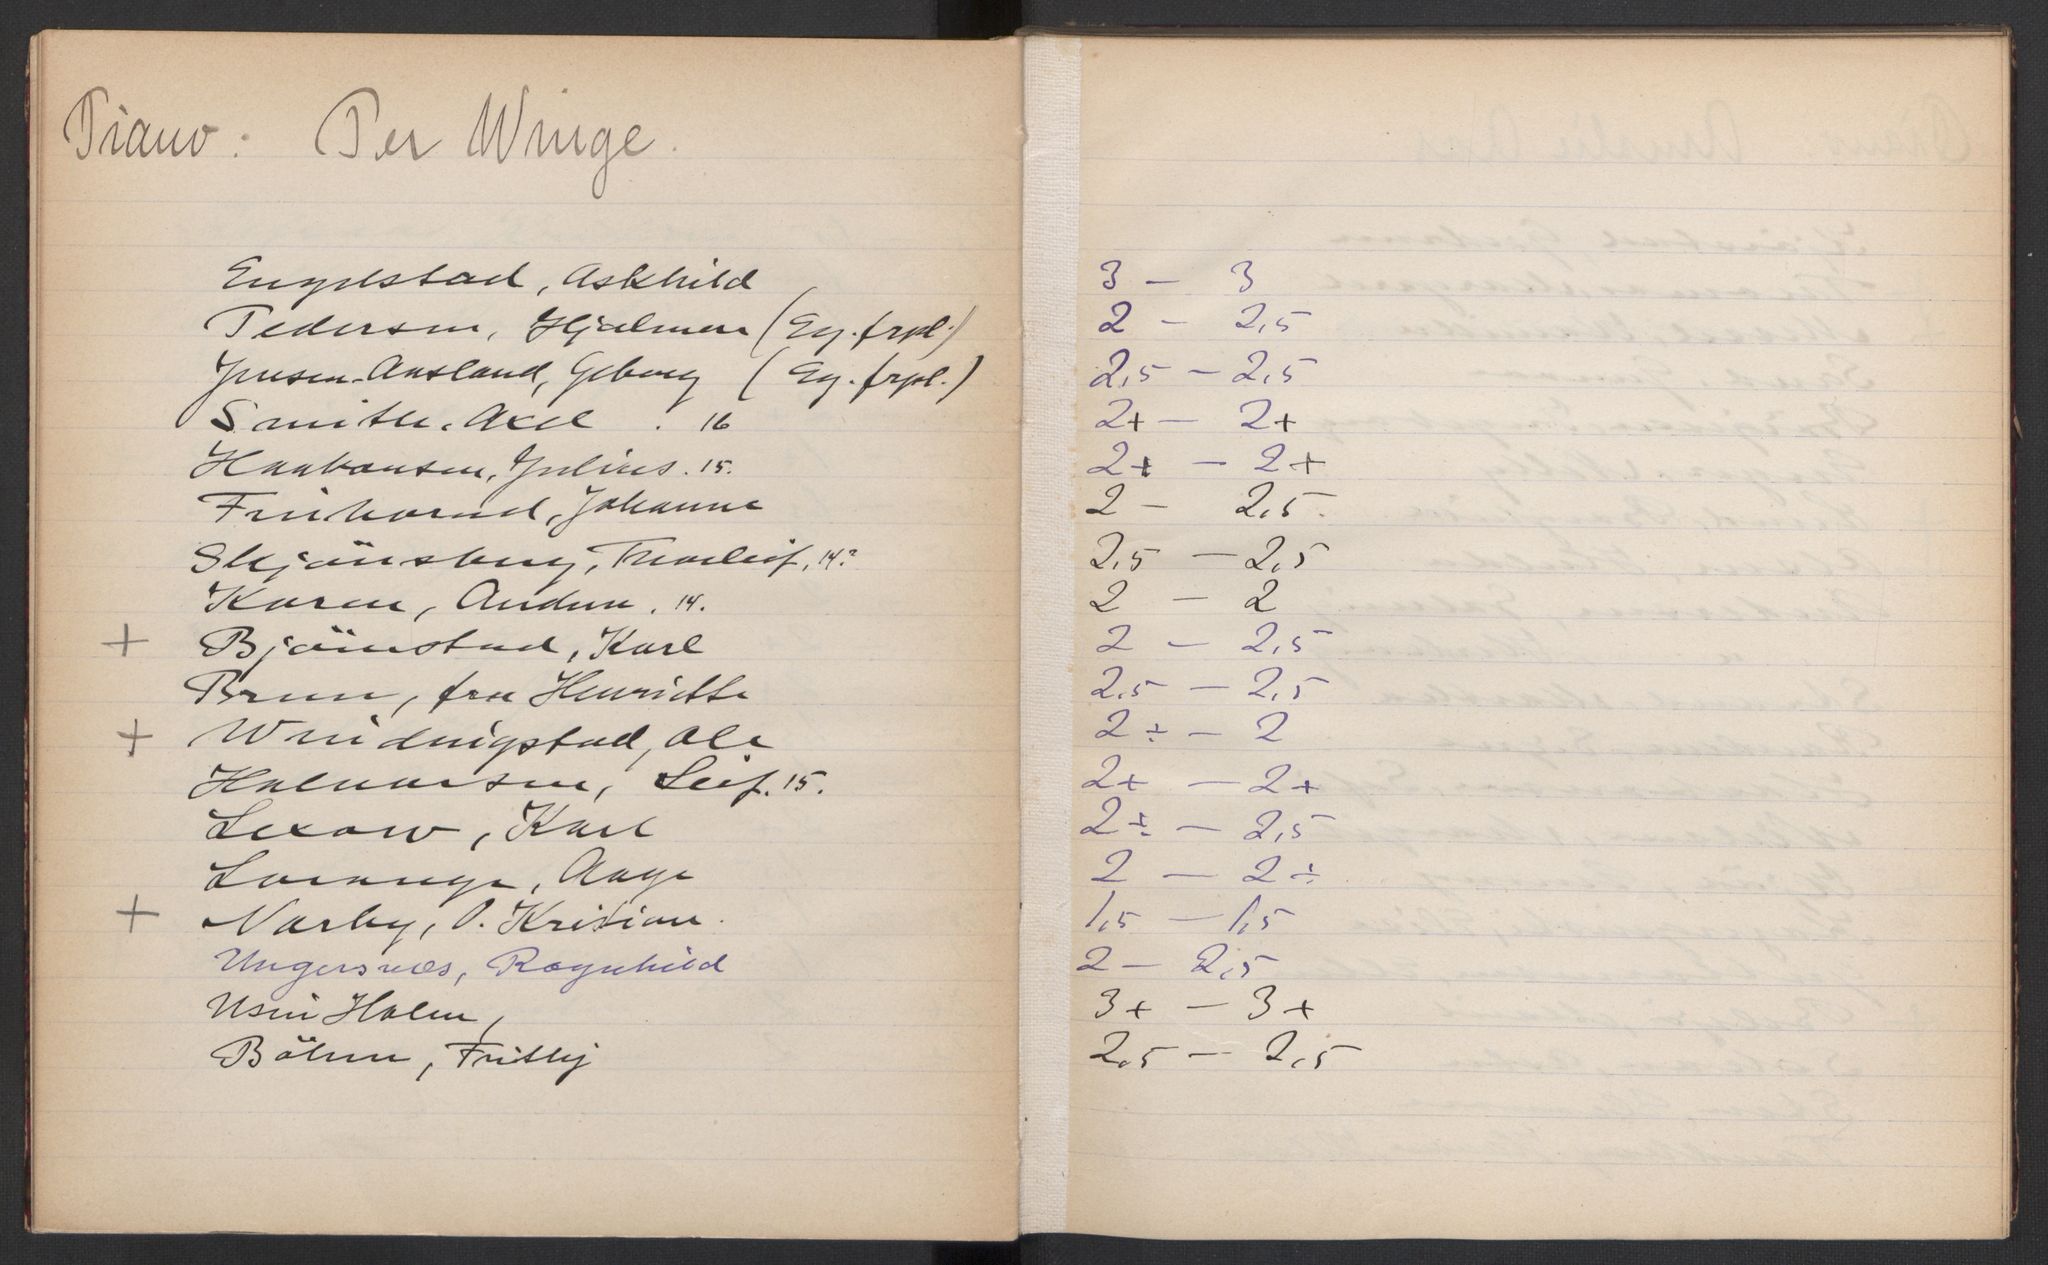 Piano: Per Winge.
Engelstad, Aslhild 3 - 3
Pedersen, Hjalmar (Eg. frpl.) 2 - 2,5
Jensen-Aasland, (Eg. frpl.) 2,5 - 2,5
Smith, Axel . 16 2+ - 2+
Haakonsen, Julius. 15. 2+ - 2+
Johanne 2 - 2,5.
Skjönsberg, Thorleif, 14? 2,5 - 2,5
Karen, 14. 2 - 2
+ Björnstad, Karl 2 - 2,5
Brun, fru Henriette 2,5 - 2,5
+ Ole 2÷ - 2
Halvorsen, Leif. 15. 2+ - 2+
Lexow, Karl 2÷ - 2,5
Lorange, Aage 2 - 2÷
+ Narby, O. Kristian. 1,5 - 1,5
Ungersnæs, Ragnhild 2 - 2,5
Holm, 3+ - 3+
Böhm, Frithj 2,5 - 2,5